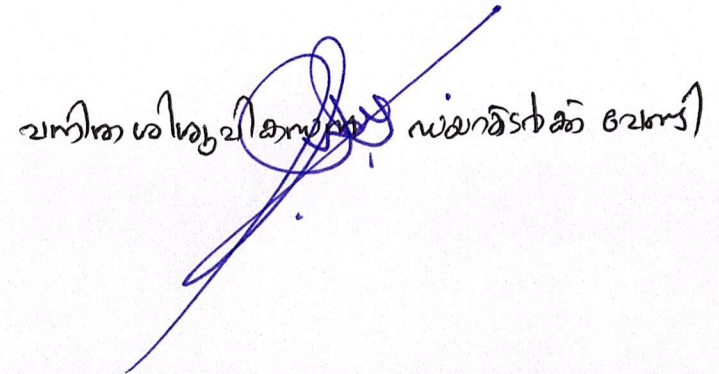 വനിതാ ശിശു വികസന ഡയറക്ടർക്ക് വേണ്ടി